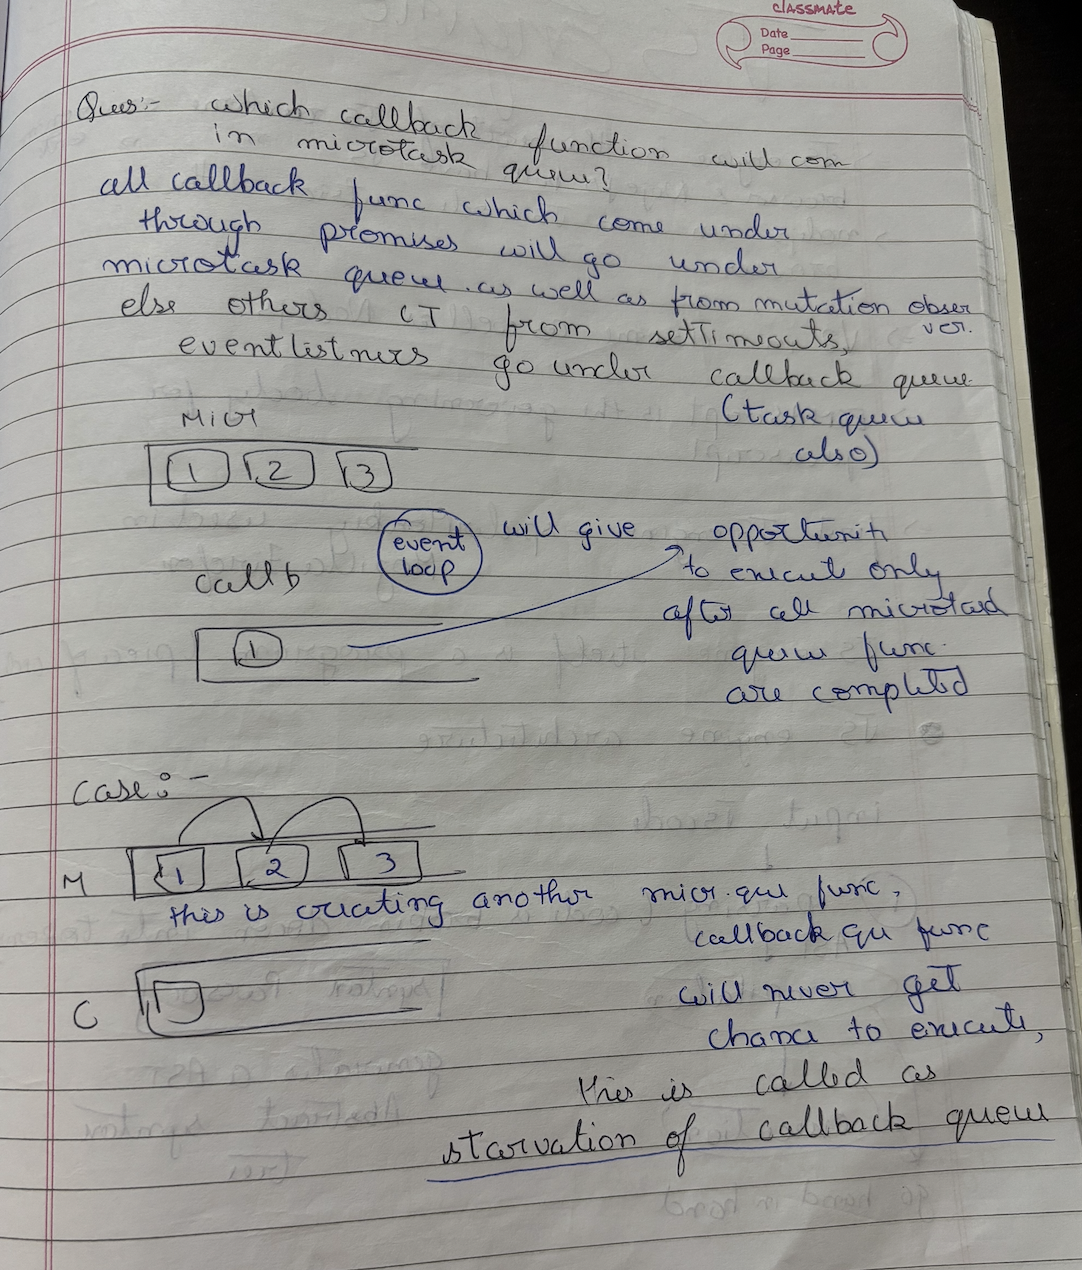 classmate
Date
Page
Ques:- which callback function will com
in microtask queue?
all callback func which come under
through promises will go under
microtask queue. as well as from mutation obser
ver.
else others CT from setTimeouts,
eventlistners go under callback queue
(task queue
also)
Micr
1 2 3
event
loop
will give opportunit
to execut only
after all microtask
queue func.
are completed
callb
1
Case:-
M 1 2 3
this is creating another micr. qu func,
callback qu func
C
will never get
chance to execute,
this is called as
starvation of callback queue